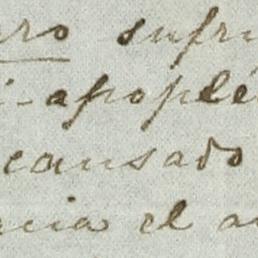 ero sufri
i-apoplé
causado
ncia el a